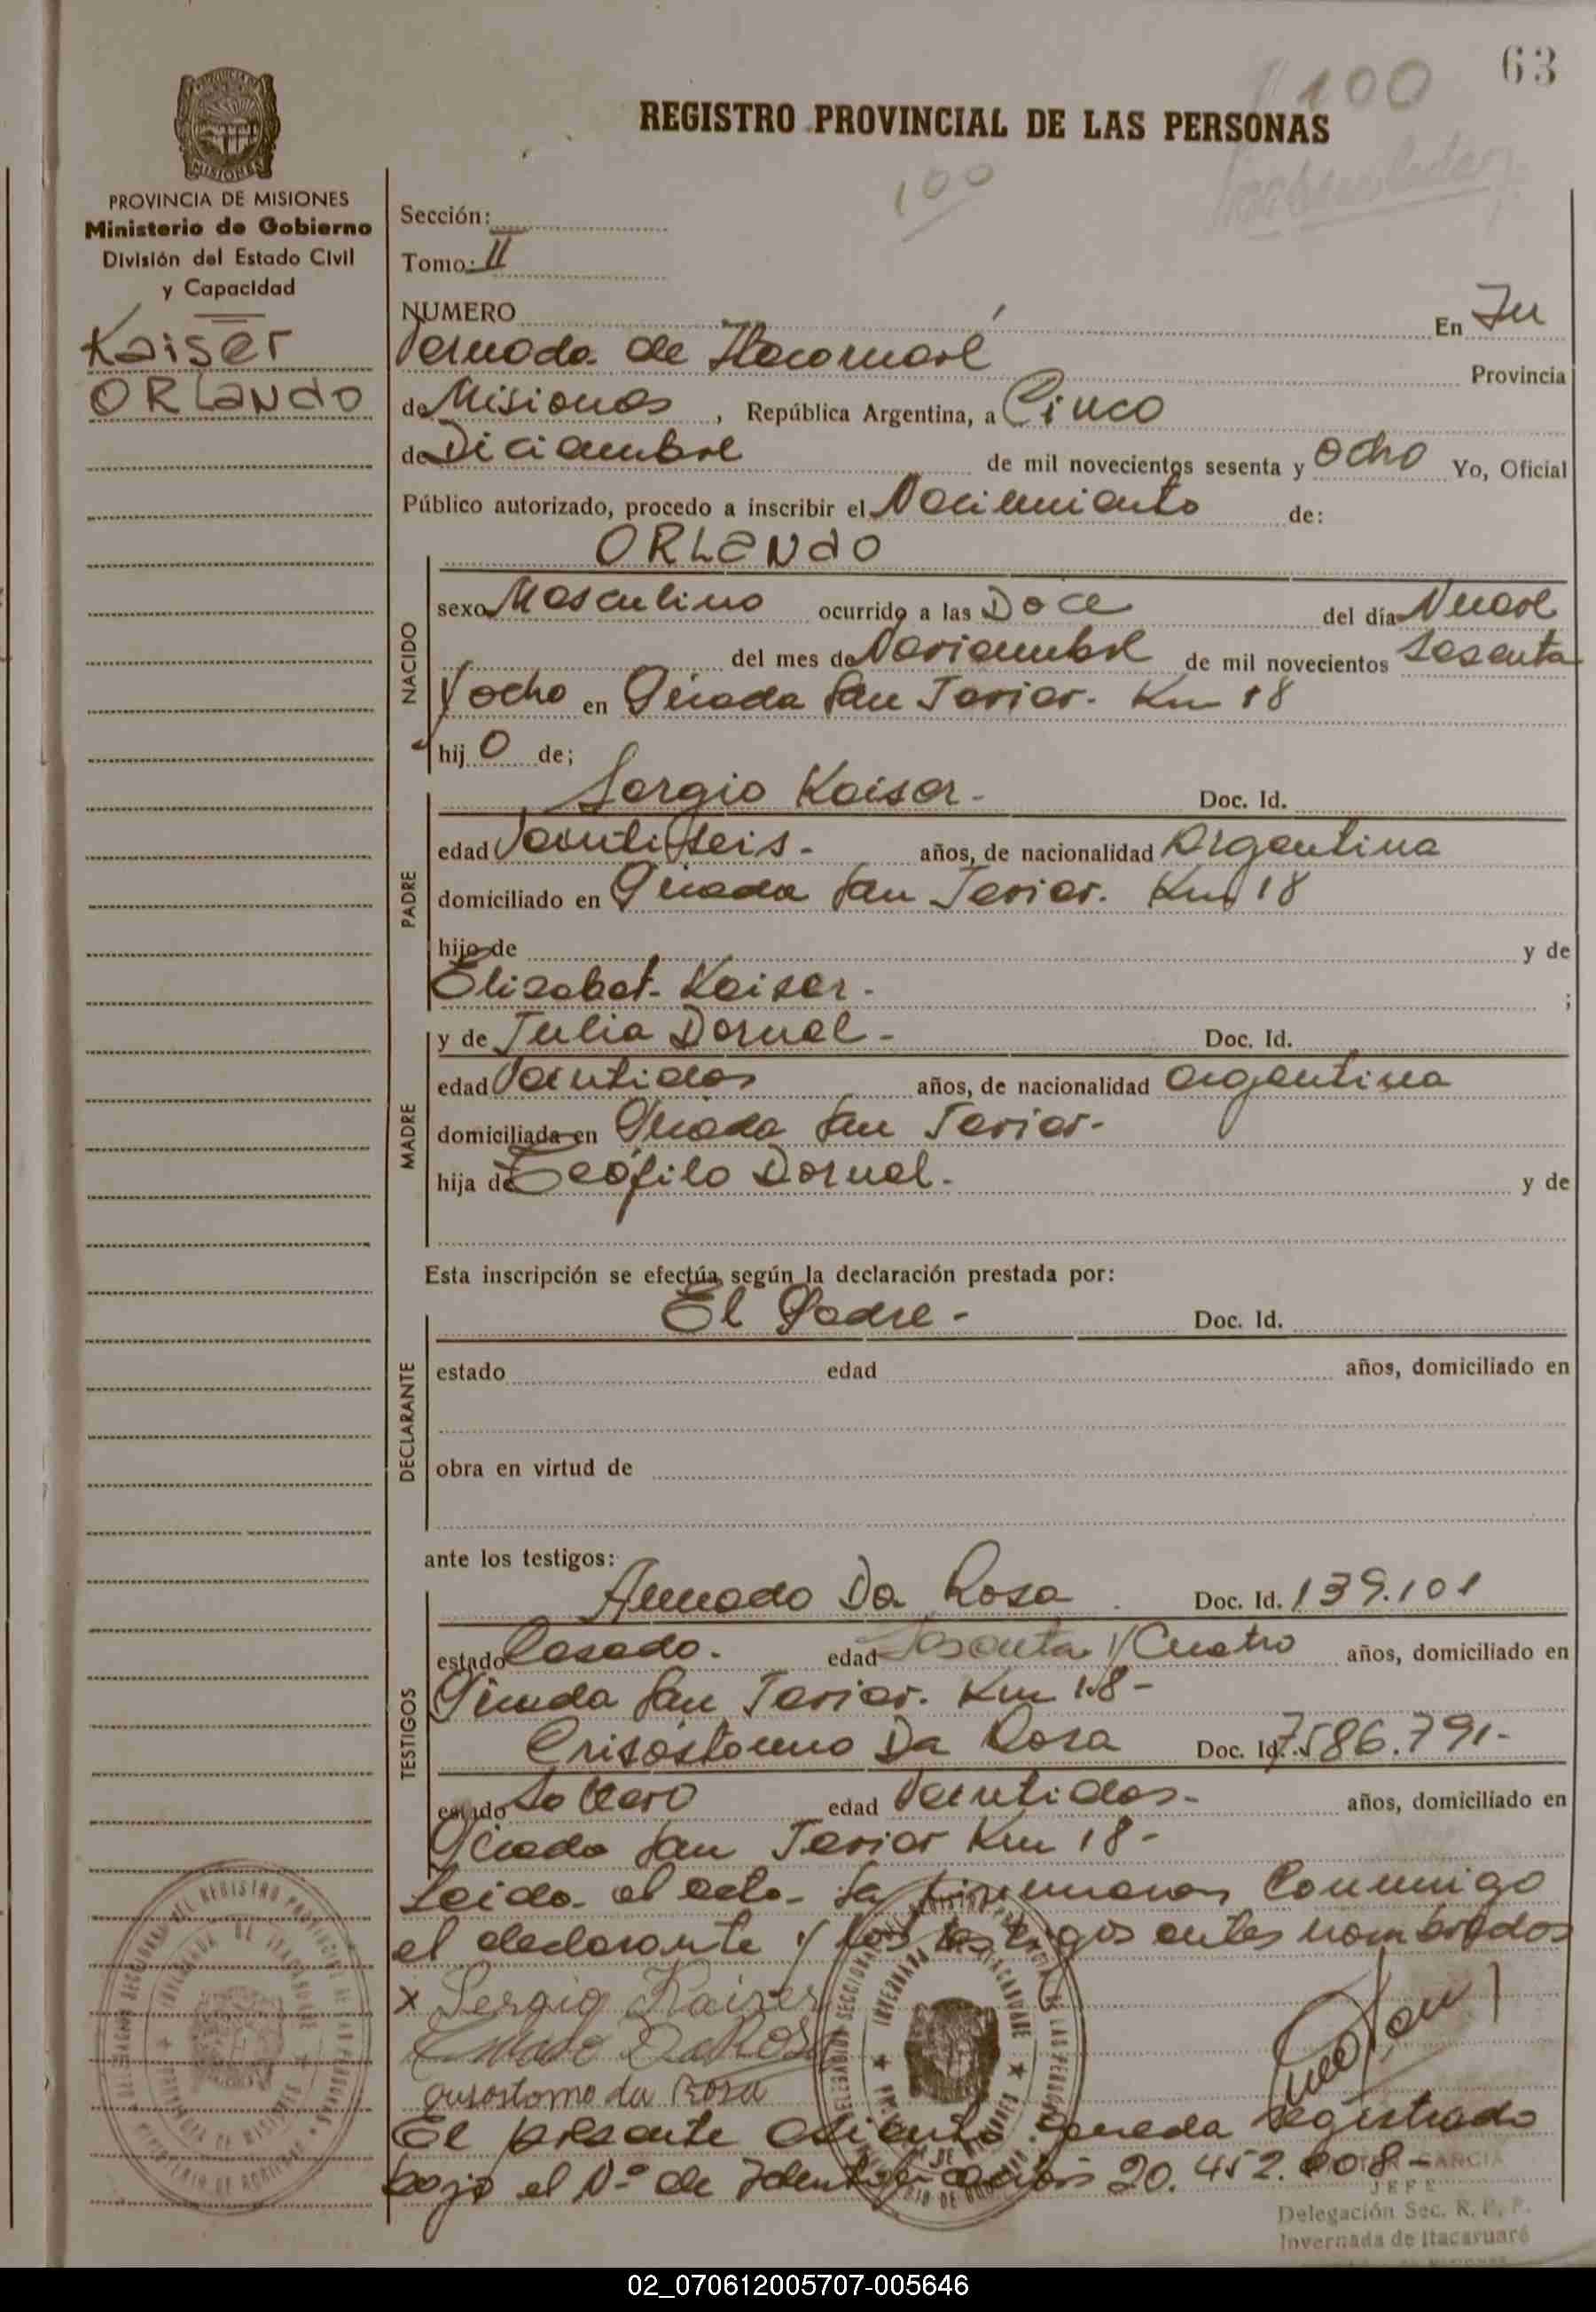 63
100
REGISTRO PROVINCIAL DE LAS PERSONAS
100
MISIONES
PROVINCIA DE MISIONES
Ministerio de Gobierno
División del Estado Civil
y Capacidad
Kaiser
ORLANDO
Sección:
Tomo: II
NUMERO En In
vernada de Itacaruaré Provincia
de Misiones, República Argentina, a Cinco
de Diciembre de mil novecientos sesenta y ocho Yo, Oficial
Público autorizado, procedo a inscribir el Nacimiento de:
ORLANDO
NACIDO
sexo Masculino ocurrido a las Doce del día Nueve
del mes de Noviembre de mil novecientos Sesenta
y ocho en Picada San Javier. Km 18
hijo de;
Sergio Kaiser- Doc. Id.
PADRE
edad Veintiseis- años, de nacionalidad Argentina
domiciliado en Picada San Javier. Km 18
hijo de y de
Elisabet Kaiser- ;
y de Julia Dornel- Doc. Id.
MADRE
edad Veintidos años, de nacionalidad argentina
domiciliada en Picada San Javier-
hija de Teófilo Dornel- y de
Esta inscripción se efectúa según la declaración prestada por:
El Padre- Doc. Id.
DECLARANTE
estado edad años, domiciliado en
obra en virtud de
ante los testigos:
Amado Da Rosa Doc. Id. 139.101
TESTIGOS
estado Casado. edad Sesenta y Cuatro años, domiciliado en
Picada San Javier. Km 18-
Crisóstomo Da Rosa Doc. Id. 7.586.791-
estado Soltero edad Veintidos- años, domiciliado en
Picada San Javier Km 18-
Leida el acta- la firmaron Conmigo
el declarante y los testigos antes nombrados
x Sergio Kaiser
Amado Da Rosa
crisostomo da Rosa
El presente asiento queda registrado
bajo el Nº de Identificación 20.452.008-
GARCIA
JEFE
Delegación Sec. R. P. P.
Invernada de Itacaruaré
02_070612005707-005646